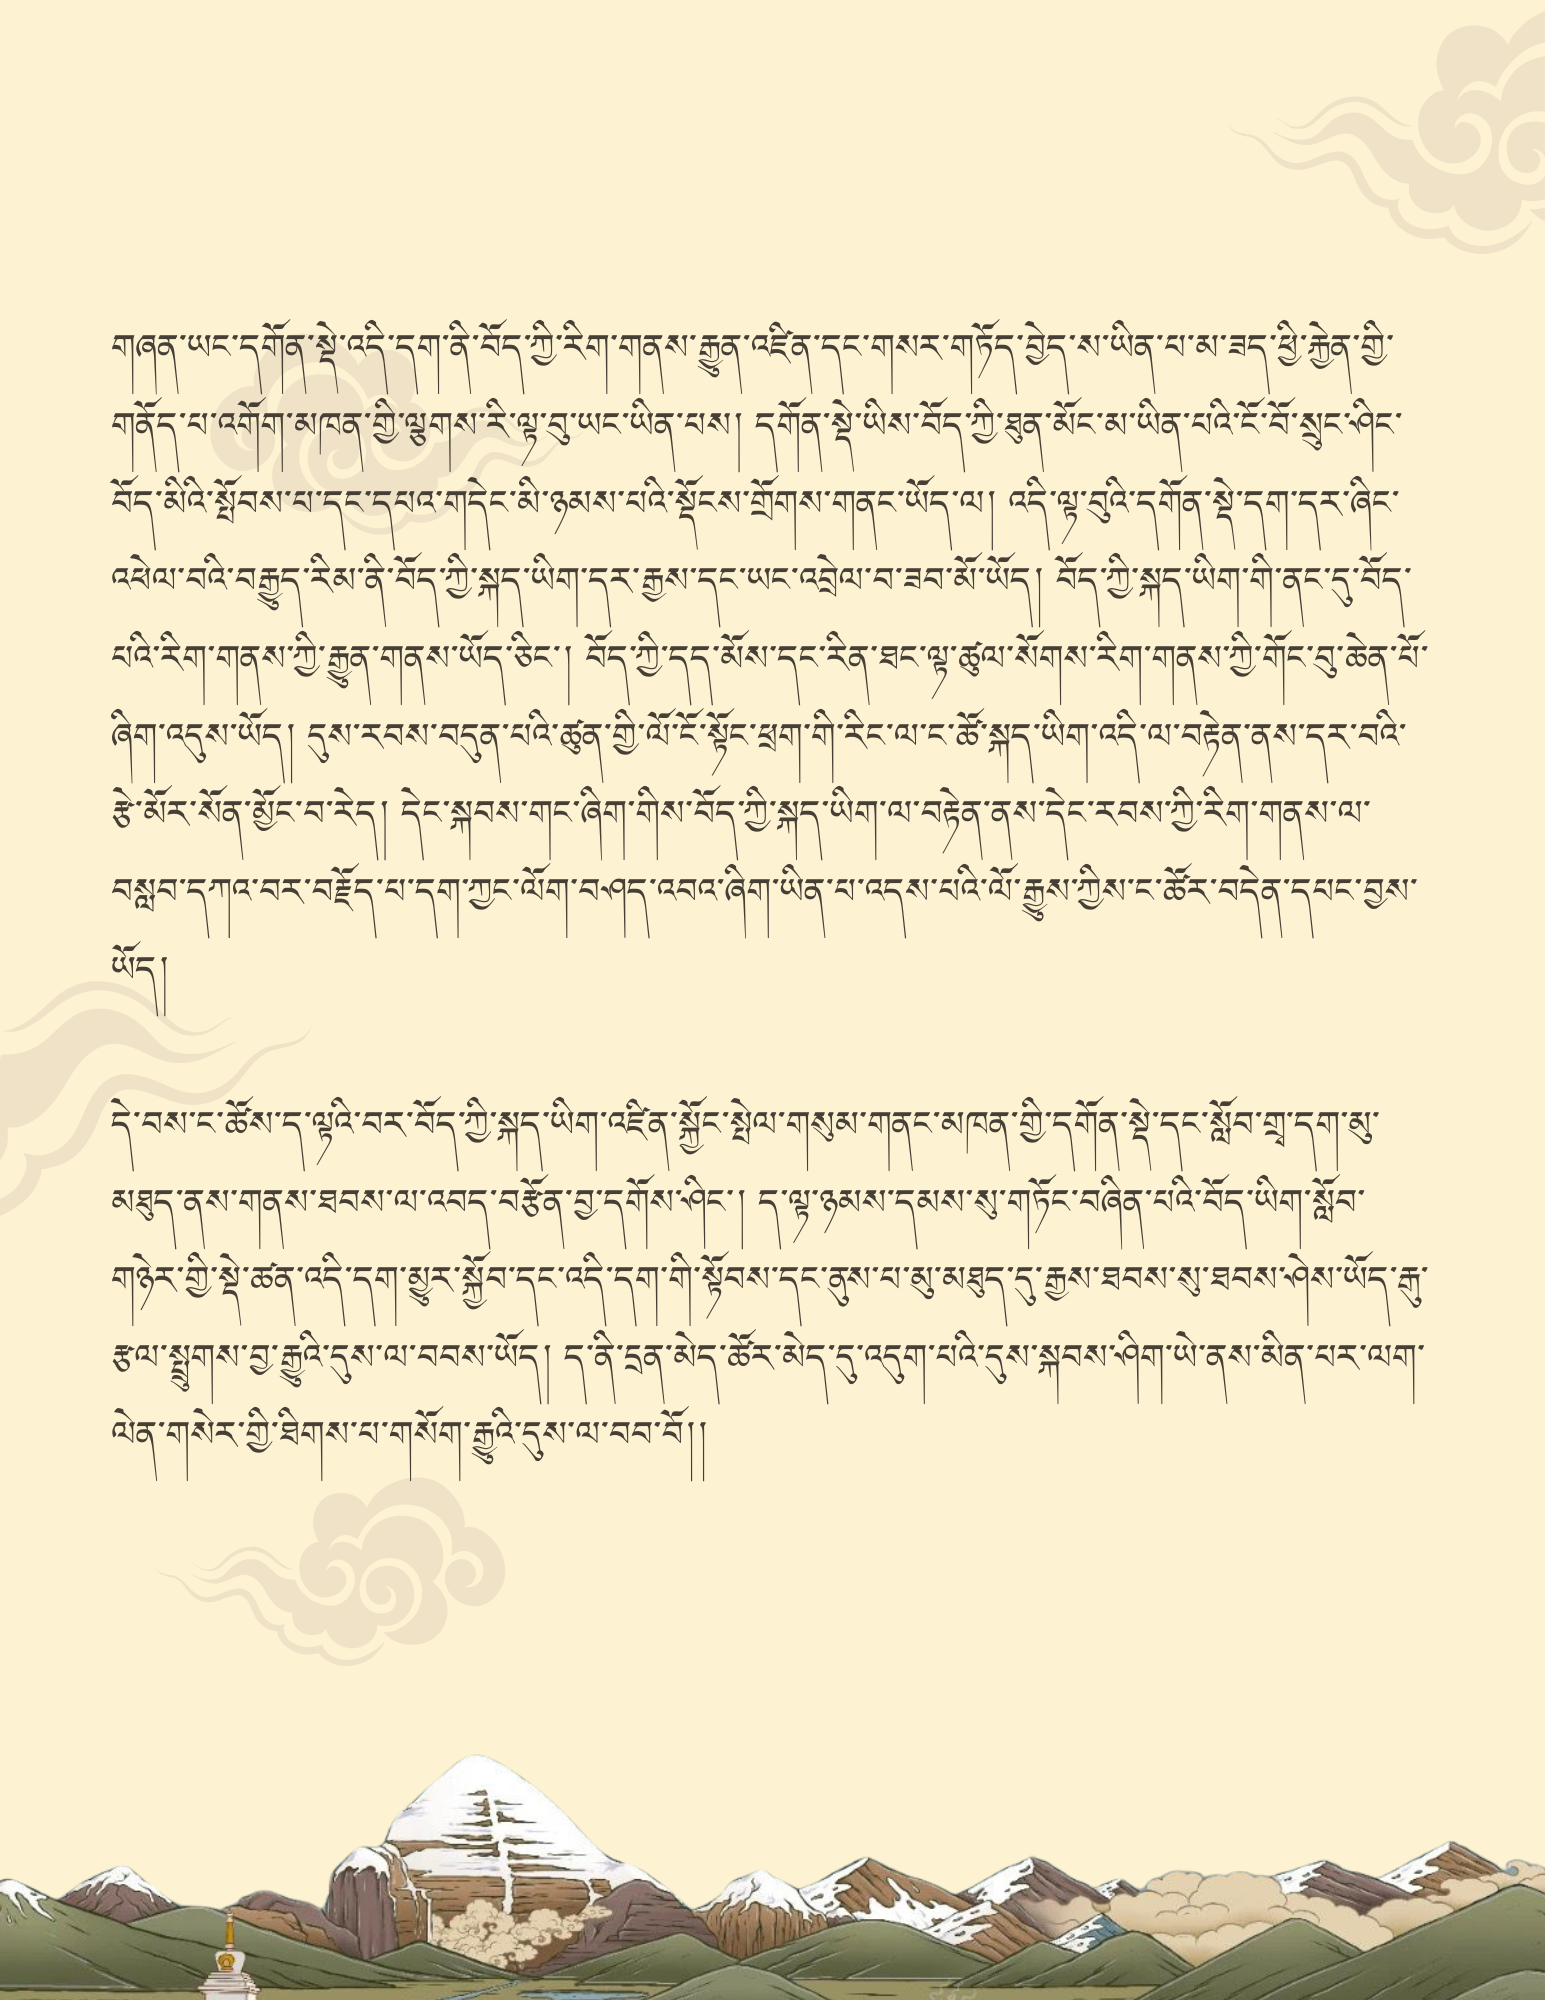 གཞན་ཡང་དགོན་སྡེ་འདི་དག་ནི་བོད་ཀྱི་རིག་གནས་རྒྱུན་འཛིན་དང་གསར་གཏོད་བྱེད་ས་ཡིན་པ་མ་ཟད་ཕྱི་རྐྱེན་གྱི་
གནོད་པ་འགོག་མཁན་གྱི་ལྕགས་རི་ལྟ་བུ་ཡང་ཡིན་པས། དགོན་སྡེ་ཡིས་བོད་ཀྱི་ཐུན་མོང་མ་ཡིན་པའི་ངོ་བོ་སྲུང་ཤིང་
བོད་མིའི་སྤོབས་པ་དང་དཔའ་གདེང་མི་ཉམས་པའི་སྡོངས་གྲོགས་གནང་ཡོད་ལ། འདི་ལྟ་བུའི་དགོན་སྡེ་དག་དར་ཞིང་
འཕེལ་བའི་བརྒྱུད་རིམ་ནི་བོད་ཀྱི་སྐད་ཡིག་དར་རྒྱས་དང་ཡང་འབྲེལ་བ་ཟབ་མོ་ཡོད། བོད་ཀྱི་སྐད་ཡིག་གི་ནང་དུ་བོད་
པའི་རིག་གནས་ཀྱི་རྒྱུན་གནས་ཡོད་ཅིང་། བོད་ཀྱི་དད་མོས་དང་རིན་ཐང་ལྟ་ཚུལ་སོགས་རིག་གནས་ཀྱི་གོང་བུ་ཆེན་པོ་
ཞིག་འདུས་ཡོད། དུས་རབས་བདུན་པའི་ཚུན་གྱི་ལོ་ངོ་སྟོང་ཕྲག་གི་རིང་ལ་ང་ཚོ་སྐད་ཡིག་འདི་ལ་བརྟེན་ནས་དར་བའི་
རྩེ་མོར་སོན་མྱོང་བ་རེད། དེང་སྐབས་གང་ཞིག་གིས་བོད་ཀྱི་སྐད་ཡིག་ལ་བརྟེན་ནས་དེང་རབས་ཀྱི་རིག་གནས་ལ་
བསླབ་དཀའ་བར་བརྗོད་པ་དག་ཀྱང་ལོག་བཤད་འབའ་ཞིག་ཡིན་པ་འདས་པའི་ལོ་རྒྱུས་ཀྱིས་ང་ཚོར་བདེན་དཔང་བྱས་
ཡོད།
དེ་བས་ང་ཚོས་ད་ལྟའི་བར་བོད་ཀྱི་སྐད་ཡིག་འཛིན་སྐྱོང་སྤེལ་གསུམ་གནང་མཁན་གྱི་དགོན་སྡེ་དང་སློབ་གྲྭ་དག་མུ་
མཐུད་ནས་གནས་ཐབས་ལ་འབད་བརྩོན་བྱ་དགོས་ཤིང་། ད་ལྟ་ཉམས་དམས་སུ་གཏོང་བཞིན་པའི་བོད་ཡིག་སློབ་
གཉེར་གྱི་སྡེ་ཚན་འདི་དག་མྱུར་སྐྱོབ་དང་འདི་དག་གི་སྟོབས་དང་ནུས་པ་མུ་མཐུད་དུ་རྒྱས་ཐབས་སུ་ཐབས་ཤེས་ཡོད་རྒུ་
རྩལ་སྤྲུགས་བྱ་རྒྱུའི་དུས་ལ་བབས་ཡོད། ད་ནི་དྲན་མེད་ཚོར་མེད་དུ་འདུག་པའི་དུས་སྐབས་ཤིག་ཡེ་ནས་མིན་པར་ལག་
ལེན་གསེར་གྱི་ཐིགས་པ་གསོག་རྒྱུའི་དུས་ལ་བབ་བོ།།